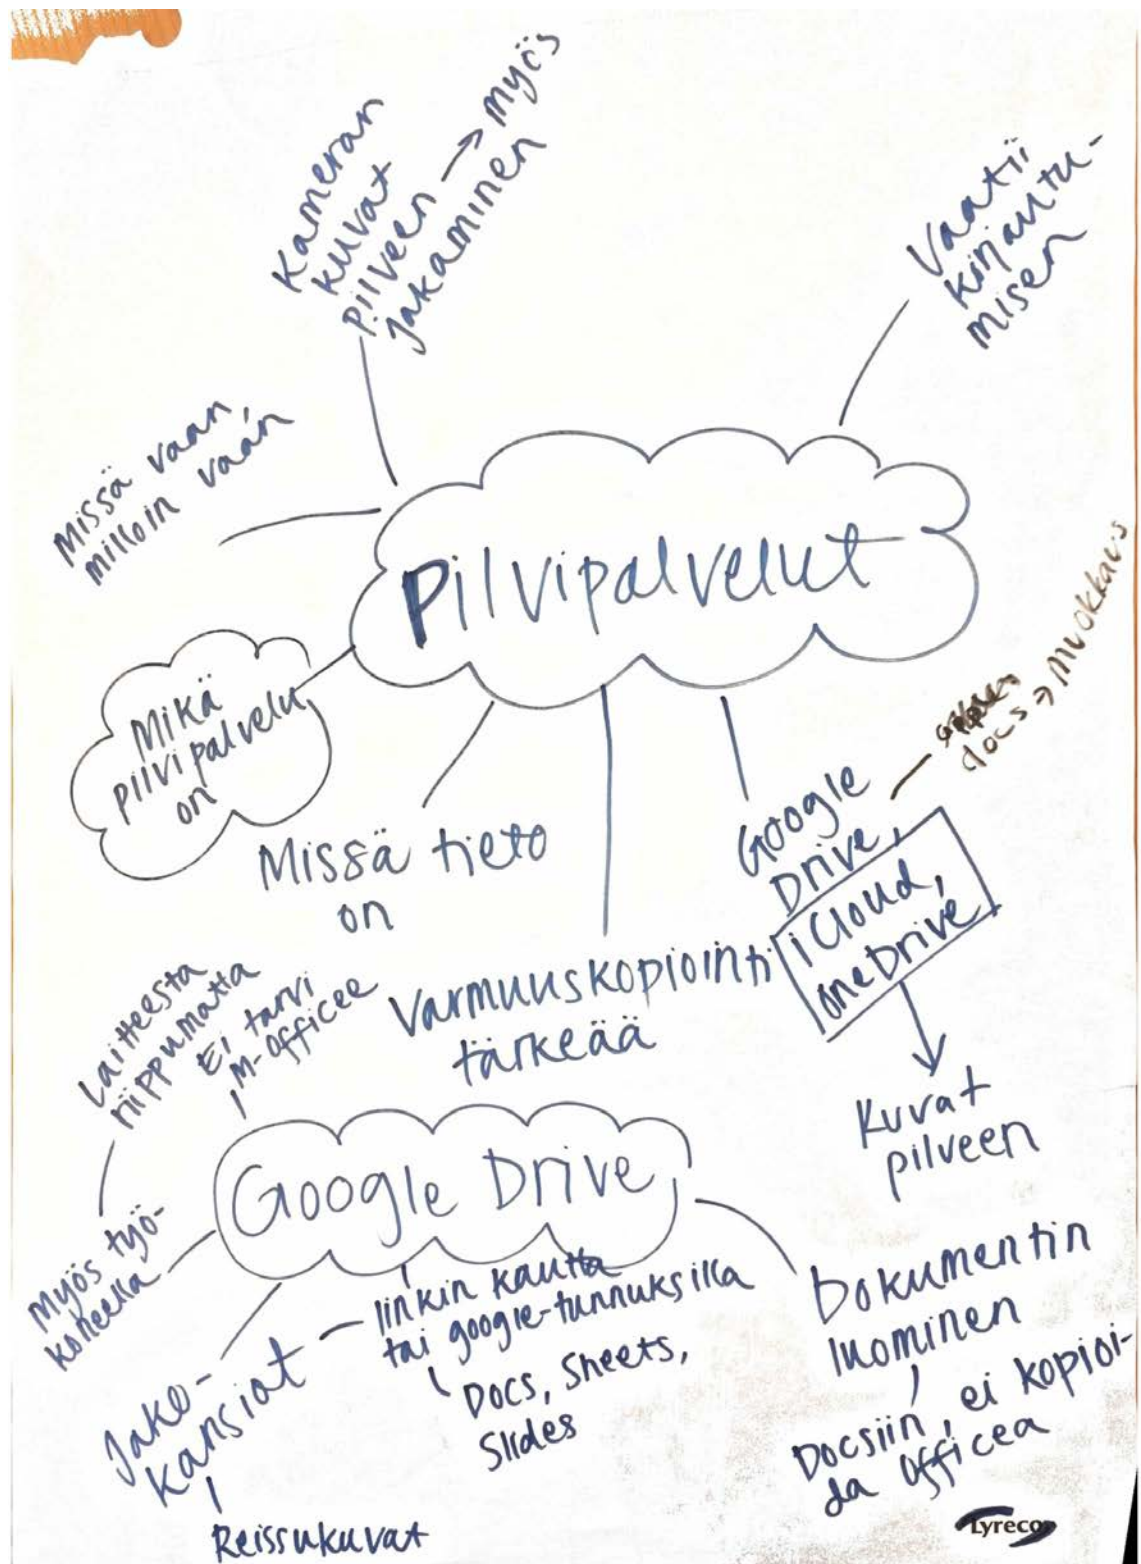 Kameran
kuvat
pilveen → myös
jakaminen
Vaatii
kirjautu-
misen
Missä vaan,
milloin vaan
Pilvipalvelut
Mikä
pilvipalvelu
on
Missä tieto
on
Varmuuskopiointi
tärkeää
Google
Drive,
iCloud,
oneDrive
docs → muokkaus
Kuvat
pilveen
Laitteesta
riippumatta
Ei tarvi
M-officee
Google Drive
Myös työ-
koneella
Jako-
kansiot
Reissukuvat
linkin kautta
tai google-tunnuksilla
Docs, Sheets,
Slides
Dokumentin
luominen
Docsiin, ei kopioi-
da officea
Lyreco